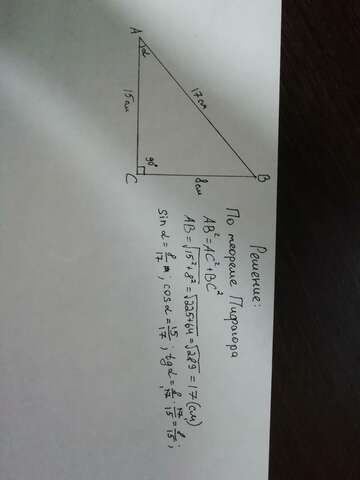 A
α
17 см
15 см
90°
C
8 см
B
Решение:
По теореме Пифагора
AB² = AC² + BC²
AB = √15² + 8² = √225+64 = √289 = 17 (см)
sin α = 8/17; cos α = 15/17; tg α = 8/17 · 17/15 = 8/15;